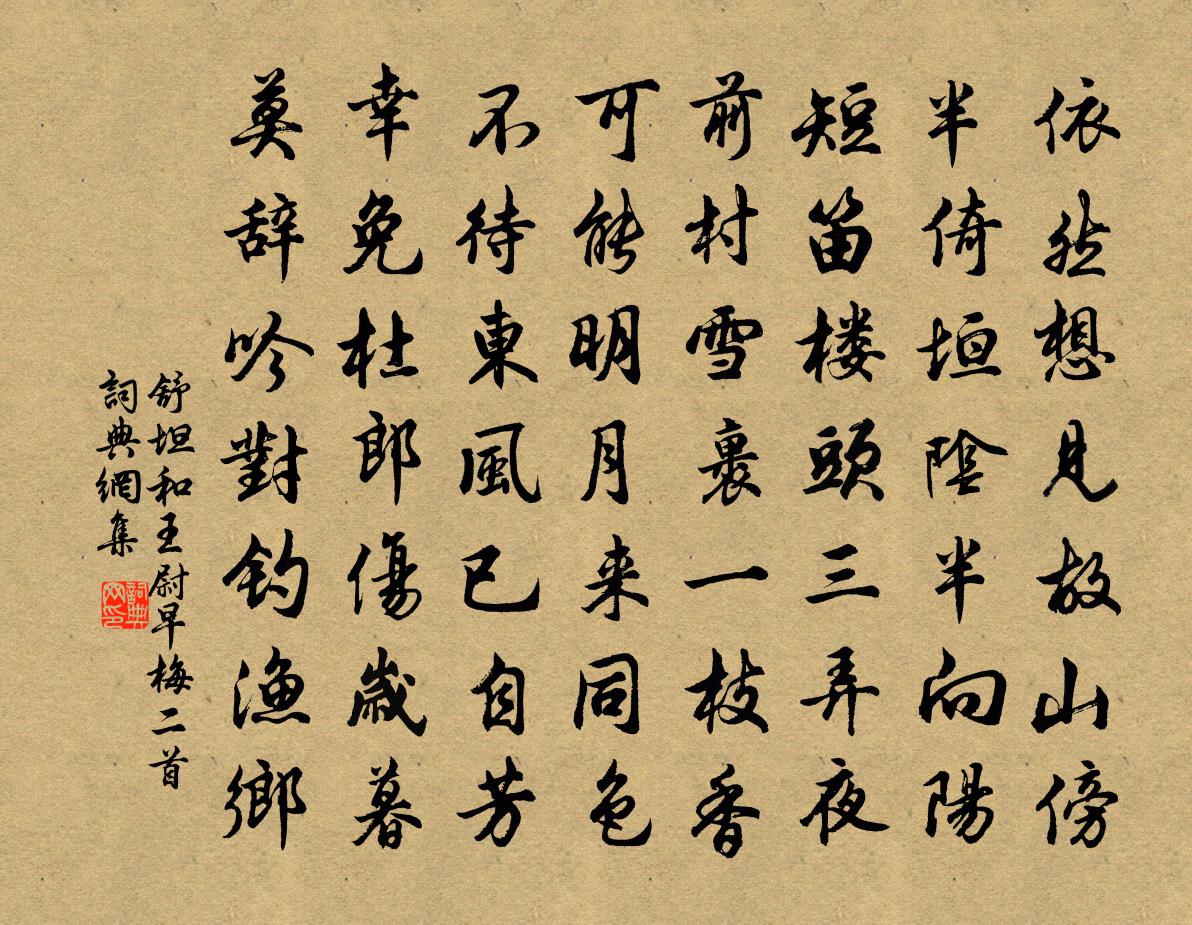 依然想見故山傍
半倚垣陰半向陽
短笛楼頭三弄夜
前村雪裹一枝香
可能明月来同色
不待東風已自芳
幸免杜郎傷歲暮
莫辞吟對釣渔鄉
舒坦和王尉早梅二首
詞典網集
詞典
网印